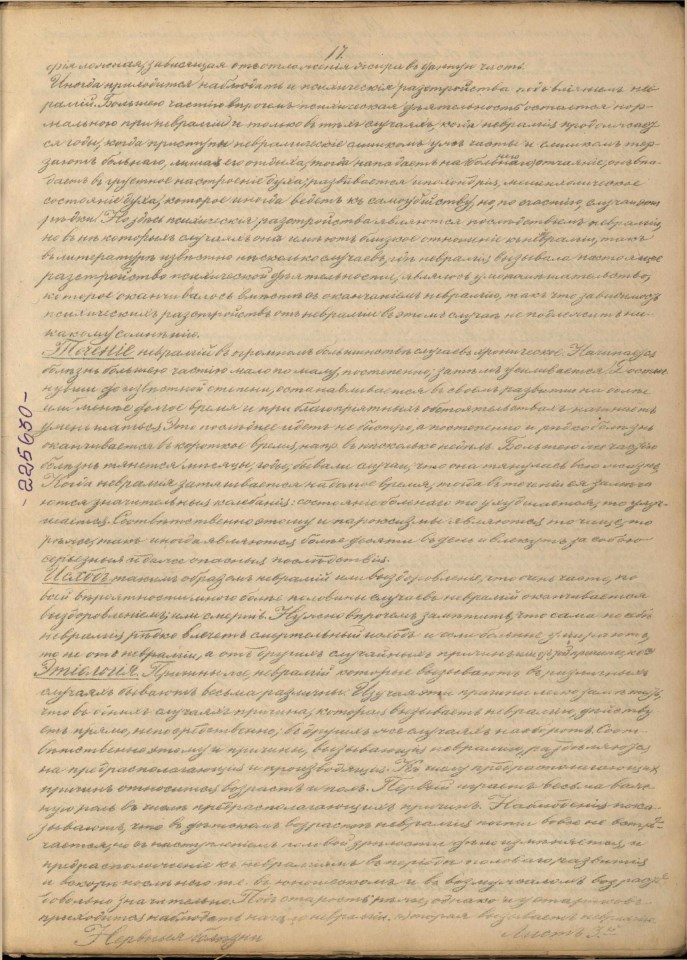 17.
фія ложная, зависящая отъ отложенія жира въ данную часть.
Иногда приходится наблюдать и психическія разстройства подъ вліяніемъ нев-
ралгій. Большею частію впрочемъ психическая дѣятельность остается нор-
мальною при невралгіи и только въ тѣхъ случаяхъ, когда невралгія продолжает-
ся годы, когда приступы невралгическіе слишкомъ ужъ часты и слишкомъ тер-
заютъ больного, лишая его отдыха, тогда нападаетъ на больного отчаяніе, онъ впа-
даетъ въ грустное настроеніе духа; развивается ипохондрія, меланхолическое
состояніе духа, которое иногда ведетъ къ самоубійству, но, по счастію, случаи эти
рѣдки. Но здѣсь психическія разстройства являются послѣдствіемъ невралгіи,
но въ нѣкоторыхъ случаяхъ они имѣютъ близкое отношеніе къ невралгіи, такъ
въ литературѣ извѣстно нѣсколько случаевъ, гдѣ невралгія вызывала настоящее
разстройство психической дѣятельности, являлось умопомѣшательство,
которое оканчивалось вмѣстѣ съ окончаніемъ невралгіи, такъ что зависимость
психическихъ разстройствъ отъ невралгіи въ этомъ случаѣ не подлежитъ ни-
какому сомнѣнію.
Теченіе невралгій въ огромномъ большинствѣ случаевъ хроническое. Начинается
болѣзнь большею частію мало по малу, постепенно; затѣмъ усиливается и достиг-
нувши до извѣстной степени, останавливается въ своемъ развитіи на болѣе
или менѣе долгое время и при благопріятныхъ обстоятельствахъ начинаетъ
уменьшаться. Это послѣднее идетъ не быстро, а постепенно и рѣдко болѣзнь
оканчивается въ короткое время, напр. въ нѣсколько недѣль. Большею же частію
болѣзнь тянется мѣсяцы, годы, бывали случаи, что она тянулась всю жизнь.
Когда невралгія затягивается на долгое время, тогда въ теченіи ея замѣча-
ются значительныя колебанія: состояніе больного то ухудшается, то улуч-
шается. Соотвѣтственно этому и пароксизмы являются то чаще, то
рѣже, такъ иногда являются болѣе десяти въ день и влекутъ за собою
серьезныя и даже опасныя послѣдствія.
Исходъ такимъ образомъ невралгій или выздоровленіе, что очень часто, по
всей вѣроятности много болѣе половины случаевъ невралгій оканчивается
выздоровленіемъ, или смерть. Нужно впрочемъ замѣтить, что сама по себѣ
невралгія рѣдко влечетъ смертельный исходъ и если больные умираютъ,
то не отъ невралгіи, а отъ другихъ случайныхъ причинъ
Этіологія. Причины же, невралгій которыя вызываютъ въ различныхъ
случаяхъ бываютъ весьма различны. Изучая эти причины легко замѣтить,
что въ однихъ случаяхъ причина, которая вызываетъ невралгію, дѣйству-
етъ прямо, непосредственно; въ другихъ же случаяхъ наоборотъ. Соот-
вѣтственно этому и причины, вызывающія невралгію, раздѣляются
на предрасполагающія и производящія. Къ числу предрасполагающихъ
причинъ относится возрастъ и полъ. Первый играетъ весьма важ-
ную роль въ числѣ предрасполагающихъ причинъ. Наблюденія пока-
зываютъ, что въ дѣтскомъ возрастѣ невралгія почти вовсе не встрѣ-
чается, но съ наступленіемъ половой зрѣлости дѣло измѣняется, и
предрасположеніе къ невралгіямъ въ періодъ полового развитія
и вскорѣ послѣ него т.е. въ юношескомъ и въ возмужаломъ возрастѣ
довольно значительно. Подъ старость меньше, однако и у стариковъ
приходится наблюдать начало невралгіи. Вторая вызываетъ невралгію
Нервныя болѣзни
Листъ 3й
- 225630 -